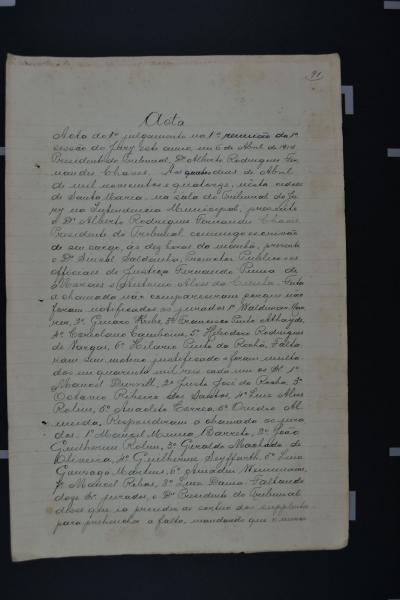 91
Acta
Acta do 1º julgamento na 1ª reunião da 1ª
sessão do Jury este anno, em 6 de Abril de 1914
Presidente do Tribunal, Dr Alberto Rodrigues Fer
nandes Chaves. Aos quatro dias de Abril
de mil novecentos e quatorze, nesta cidade
de Santa Maria, na sala do Tribunal do Ju
ry na Intendencia Municipal, presente
o Dr Alberto Rodrigues Fernandes Chaves
Presidente do Tribunal commigo escrivão
de seu cargo, ás dez horas da manhã, presente
o Dr Saldanha, Promotor Publico e os
officiaes de Justiça Fernando Penna de
Moraes e Antonio Alves da Cunha. Feita
a chamada não compareceram porque não
foram notificados os jurados 1º Waldemar
2º 3º Francisco Pinto
4º Coriolano Camboim, 5º Heleodoro Rodrigues
de Vargas, 6º Hilario Pinto da Rocha, Falta
ram sem motivo justificado e foram multa
dos em quarenta mil reis cada um os Sr. 1º
Manoel 2º Justo José da Rocha, 3º
Octavio Ribeiro dos Santos, 4º Luiz Alves
Rolim, 5º Anacleto Correa, 6º Orestes Al
meida, Responderam a chamada os jura
dos: 1º Manoel Muniz Barreto, 2º João
Guilherme Rolim, 3º Geraldo Machado de
Oliveira, 4º Guilherme Seyffarth, 5º Luiz
Gonzaga Martins, 6º Amadeu
7º Manoel Ribas, 8º Luiz Dania. Faltando
doze Sr. jurados, o Dr Presidente do Tribunal
disse que ia proceder ao sorteio dos supplentes
para prehencher a falta, mandando que o menor